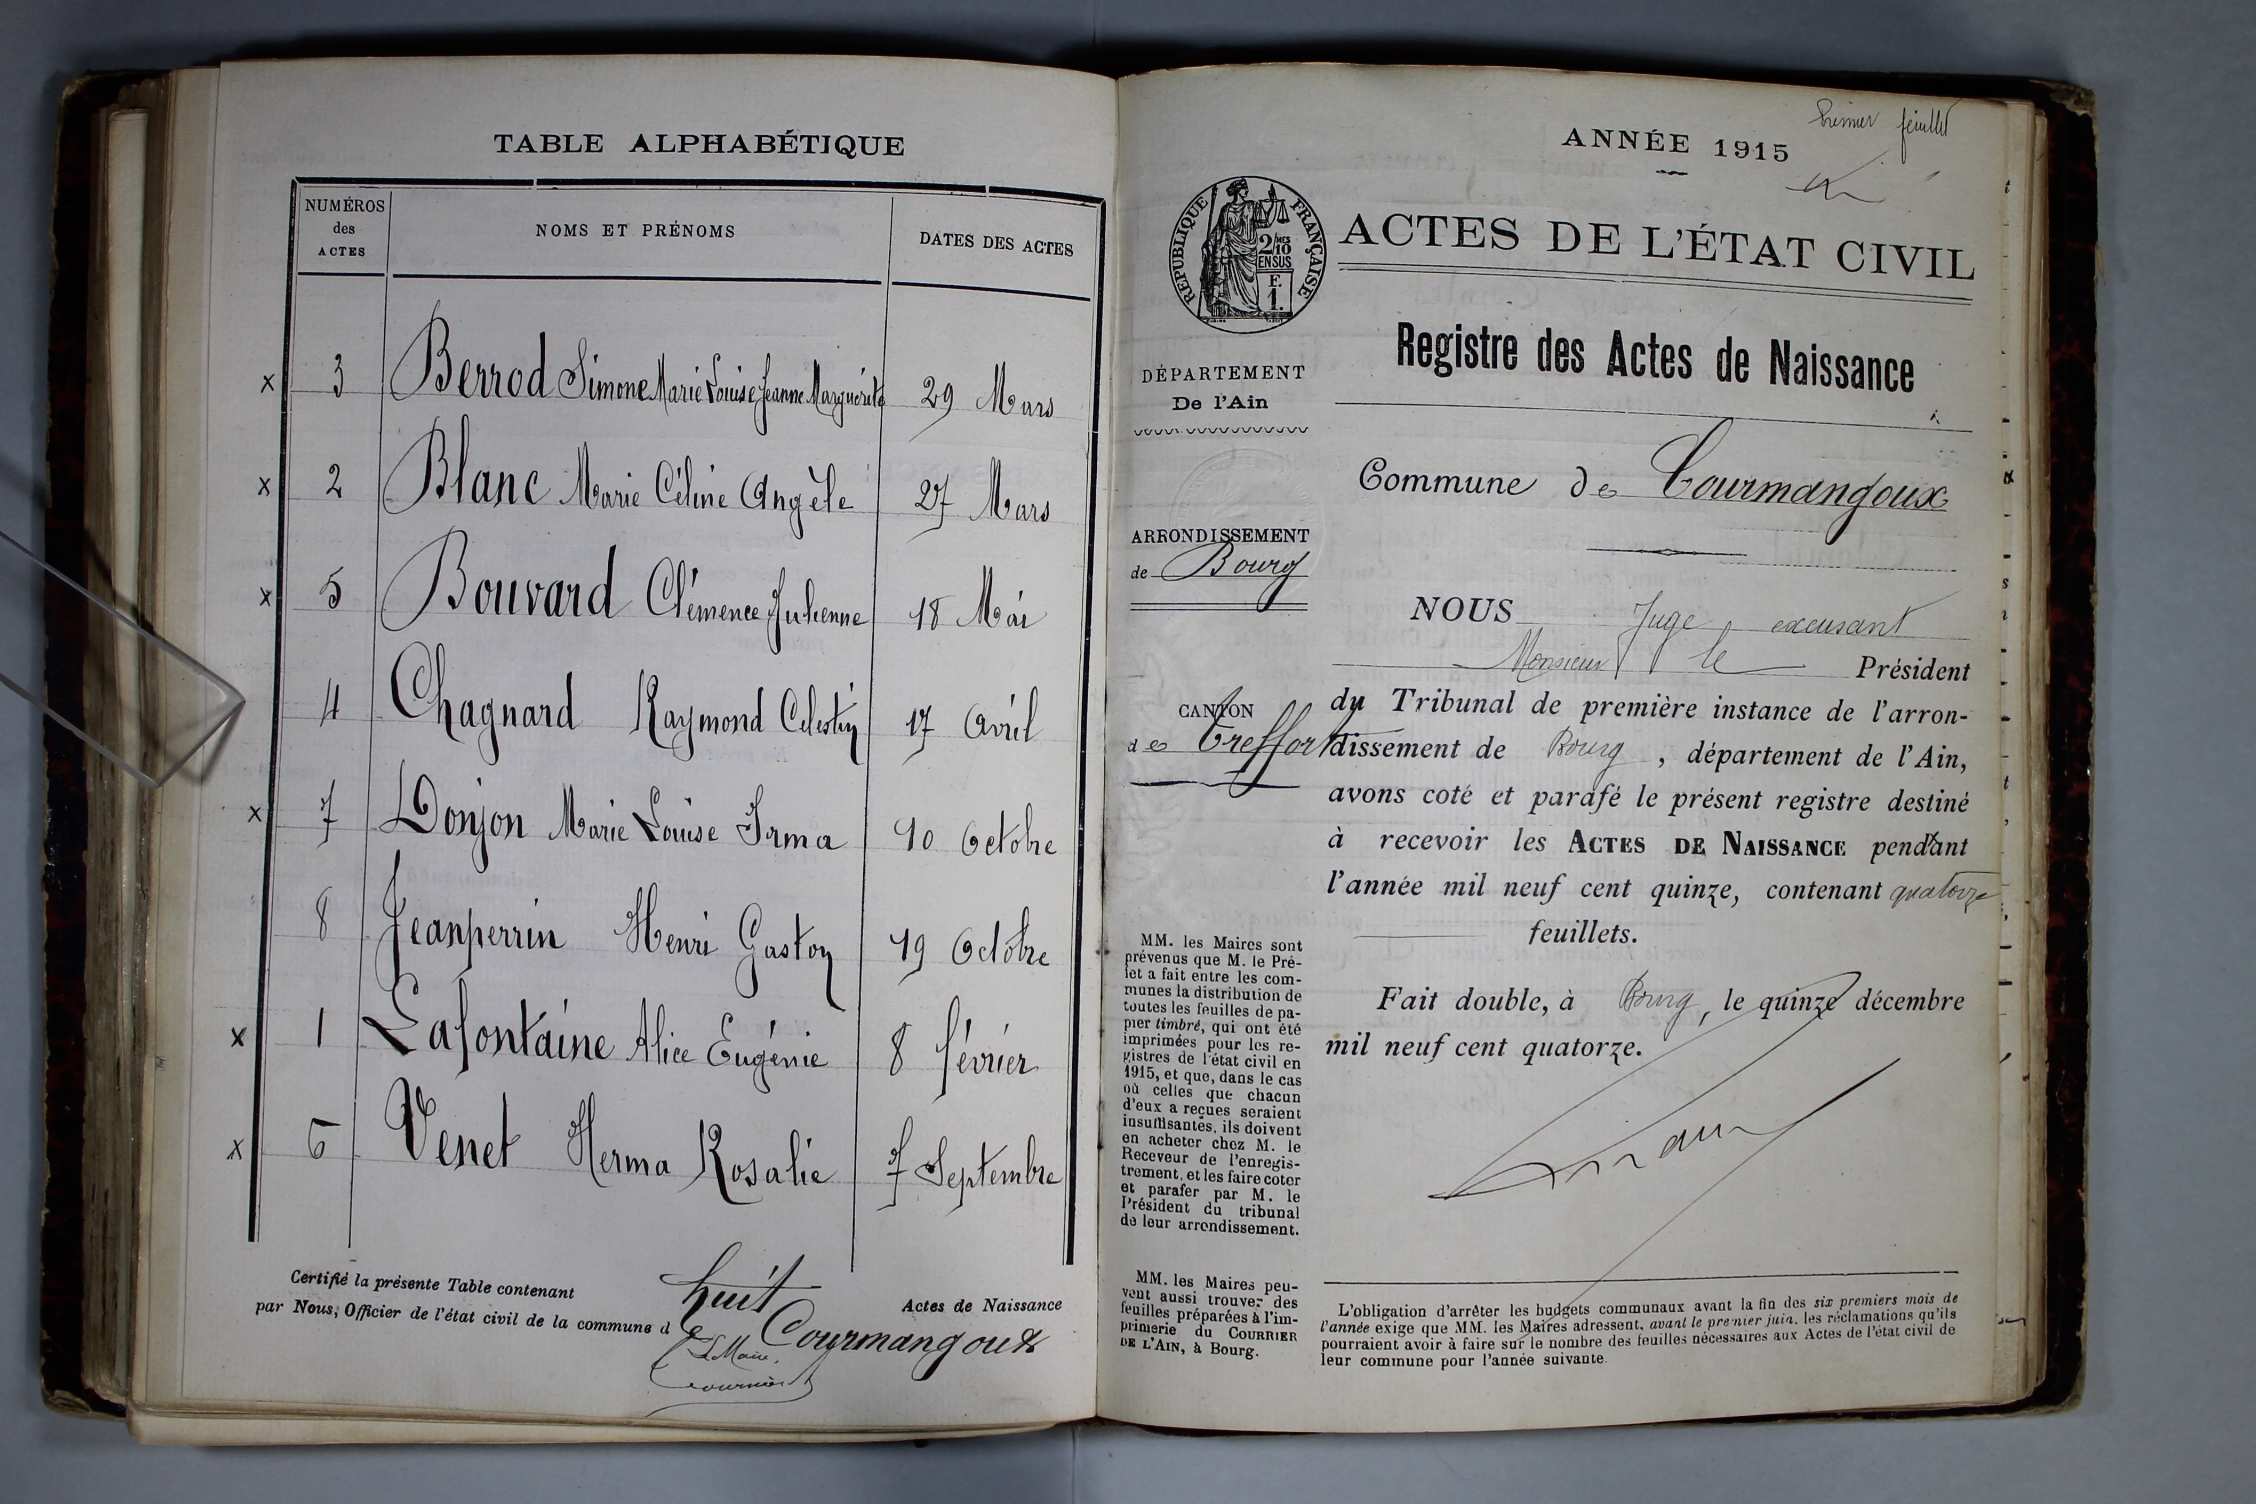 TABLE ALPHABÉTIQUE
NUMÉROS des ACTES
NOMS ET PRÉNOMS
DATES DES ACTES
x 3 Berrod Simone Marie Louise Jeanne Marguerite 29 Mars
x 2 Blanc Marie Céline Angèle 27 Mars
x 5 Bouvard Clémence Julienne 18 Mai
4 Chagnard Raymond Celestin 17 Avril
x 7 Donjon Marie Louise Irma 10 Octobre
8 Jeanperrin Henri Gaston 19 Octobre
x 1 Lafontaine Alice Eugénie 8 février
x 6 Venet Herma Rosalie 7 Septembre
Certifié la présente Table contenant huit Actes de Naissance
par Nous, Officier de l'état civil de la commune de Courmangoux
Le Maire,
Premier feuillet
ANNÉE 1915
RÉPUBLIQUE FRANÇAISE
2/10 MES
EN SUS
F.
1.
ACTES DE L'ÉTAT CIVIL
Registre des Actes de Naissance
DÉPARTEMENT
De l'Ain
Commune de Courmangoux
ARRONDISSEMENT
de Bourg
CANTON
de Treffort
NOUS Juge excusant
Monsieur le Président
du Tribunal de première instance de l'arron-
dissement de Bourg, département de l'Ain,
avons coté et parafé le présent registre destiné
à recevoir les ACTES DE NAISSANCE pendant
l'année mil neuf cent quinze, contenant quatorze
feuillets.
Fait double, à Bourg, le quinze décembre
mil neuf cent quatorze.
MM. les Maires sont
prévenus que M. le Pré-
fet a fait entre les com-
munes la distribution de
toutes les feuilles de pa-
pier timbré, qui ont été
imprimées pour les re-
gistres de l'état civil en
1915, et que, dans le cas
où celles que chacun
d'eux a reçues seraient
insuffisantes, ils doivent
en acheter chez M. le
Receveur de l'enregis-
trement, et les faire coter
et parafer par M. le
Président du tribunal
de leur arrondissement.
MM. les Maires peu-
vent aussi trouver des
feuilles préparées à l'im-
primerie du COURRIER
DE L'AIN, à Bourg.
L'obligation d'arrêter les budgets communaux avant la fin des six premiers mois de
l'année exige que MM. les Maires adressent, avant le premier juin, les réclamations qu'ils
pourraient avoir à faire sur le nombre des feuilles nécessaires aux Actes de l'état civil de
leur commune pour l'année suivante.